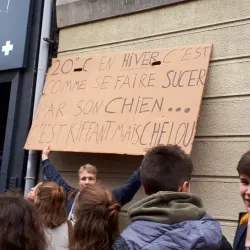 20°C EN HIVER C'EST
COMME SE FAIRE SUCER
PAR SON CHIEN...
C'EST KIFFANT MAIS CHELOU